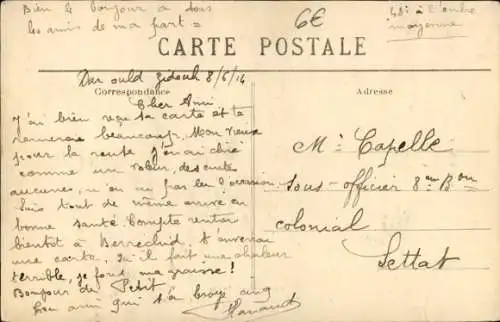 Bien le bonjour à tous
les amis de ma part =
6€
48° à l'ombre
moyenne
CARTE POSTALE
Correspondance
Adresse
Dar ould Zidouh 8/6/14
Cher Ami
J'ai bien reçu ta carte et te
remercie beaucoup. Mon vieux
pour la route j'en ai chié
comme un voleur, des cuites
aucunes, n'en ai pas eu l'occasion
Suis tout de même arrivé en
bonne santé. Compte rentrer
bientôt à Berrechid, t'enverrai
une carte. Qu'il fait une chaleur
terrible, je fond ma graisse!
Bonjour de Petit
Ton ami qui t'a
Mr Capelle
Sous-officier 8em Bon
colonial
Settat